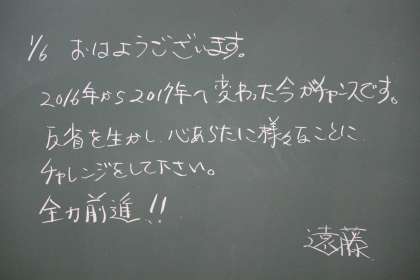 1/6 おはようございます。
2016年から2017年へ変わった今がチャンスです。
反省を生かし、心あらたに様々なことに
チャレンジをして下さい。
全力前進!!
遠藤